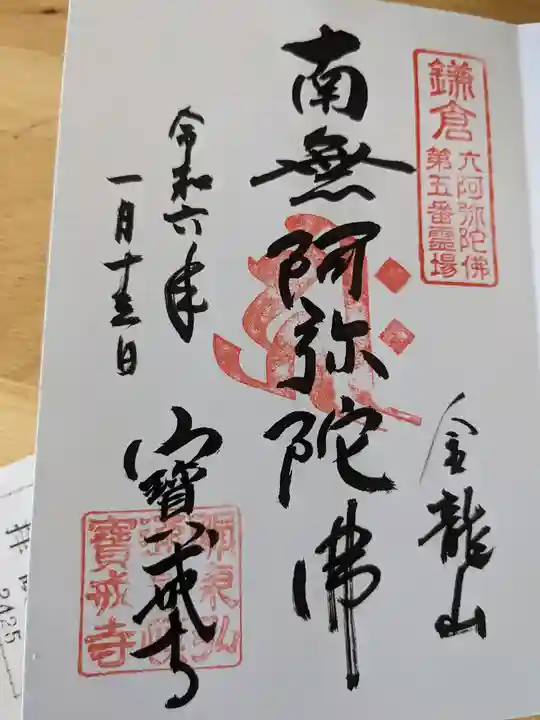 鎌倉
六阿弥陀佛
第五番霊場
金龍山
南無阿弥陀佛
令和六年
一月十三日
寶戒寺
寶戒寺
拝
2425